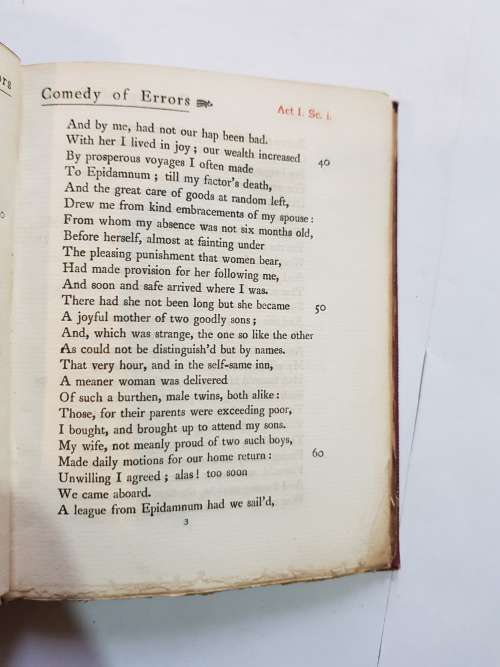 ors
Comedy of Errors
Act I. Sc. i.
And by me, had not our hap been bad.
With her I lived in joy; our wealth increased 40
By prosperous voyages I often made
To Epidamnum; till my factor's death,
And the great care of goods at random left,
Drew me from kind embracements of my spouse:
From whom my absence was not six months old,
Before herself, almost at fainting under
The pleasing punishment that women bear,
Had made provision for her following me,
And soon and safe arrived where I was.
There had she not been long but she became 50
A joyful mother of two goodly sons;
And, which was strange, the one so like the other
As could not be distinguish'd but by names.
That very hour, and in the self-same inn,
A meaner woman was delivered
Of such a burthen, male twins, both alike:
Those, for their parents were exceeding poor,
I bought, and brought up to attend my sons.
My wife, not meanly proud of two such boys,
Made daily motions for our home return: 60
Unwilling I agreed; alas! too soon
We came aboard.
A league from Epidamnum had we sail'd,
3